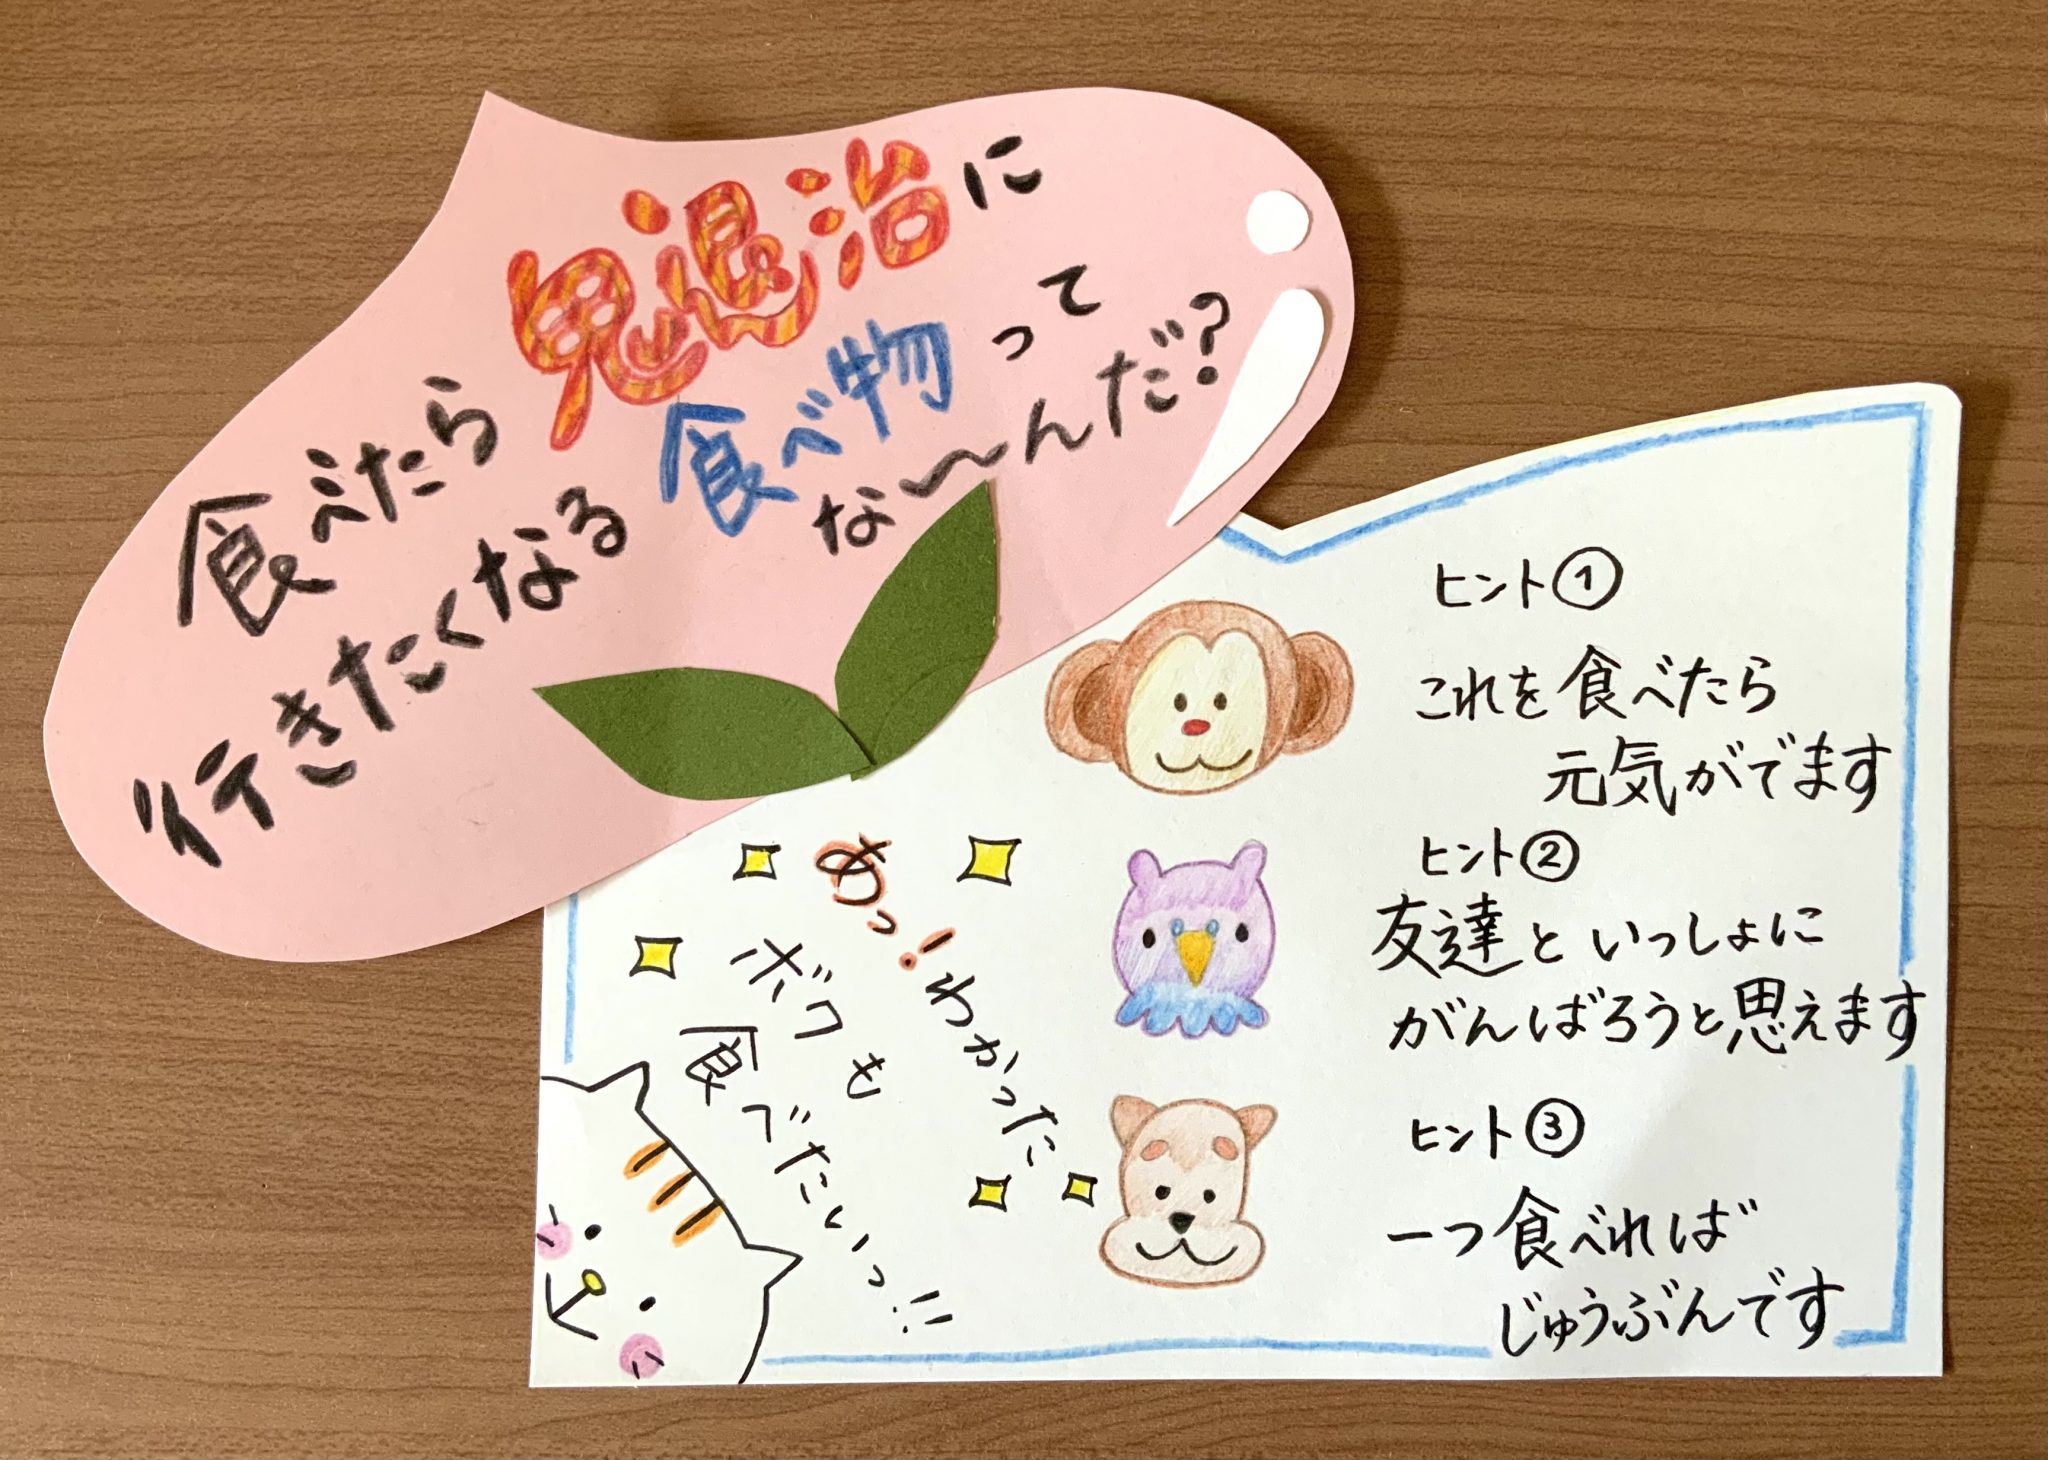 食べたら鬼退治に
行きたくなる食べ物って
な〜んだ?
ヒント①
これを食べたら
元気がでます
ヒント②
友達といっしょに
がんばろうと思えます
ヒント③
一つ食べれば
じゅうぶんです
あっ!わかった
ボクも
食べたいっ!!